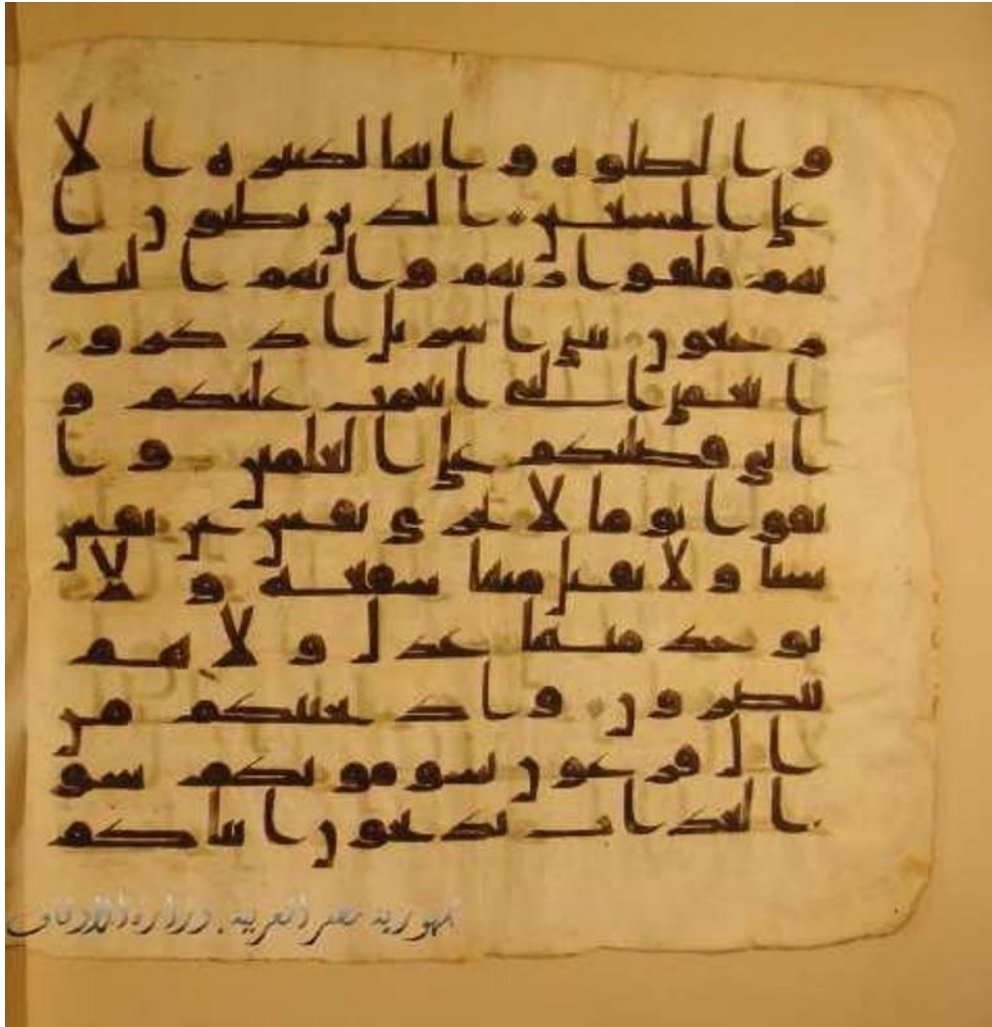 و الصلوه و انها لكبيره ا لا
على الخشعين الذين يظنون ا
نهم ملقوا ربهم و انهم اليه
رجعون يبني اسريل اذكرو
ا نعمتي التي انعمت عليكم و
اني فضلتكم على العلمين و ا
تقوا يوما لا تجزي نفس عن نفس
شيا و لا يقبل منها شفعه و لا
يوخذ منها عدل و لا هم
ينصرون و اذ نجينكم من
ال فرعون يسومونكم سو
العذاب يذبحون ابناكم
جمهورية مصر العربية . وزارة الأوقاف